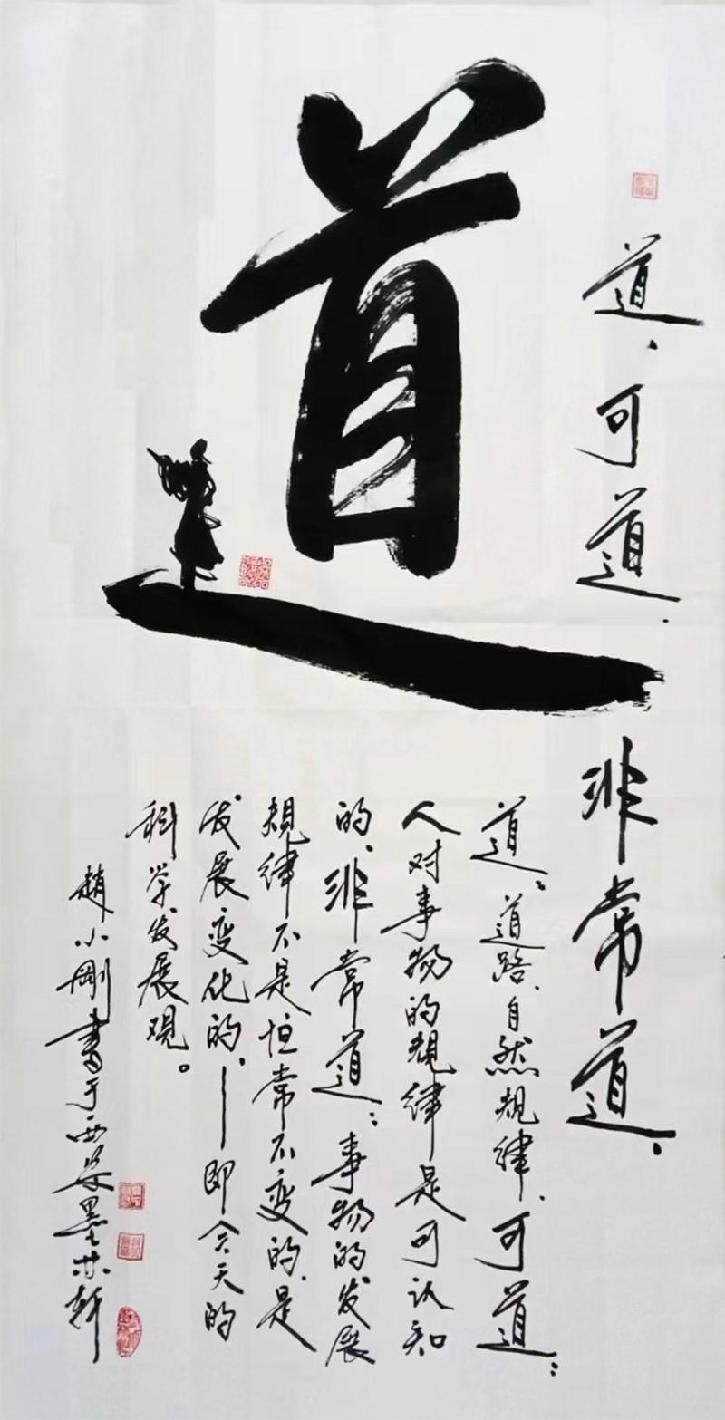 道
道，可道，
非常道。
道：道路、自然规律、可道：
人对事物的规律是可认知
的、非常道：事物的发展
规律不是恒常不变的，是
发展变化的，—即今天的
科学发展观。
趙小刚書于西安墨林轩